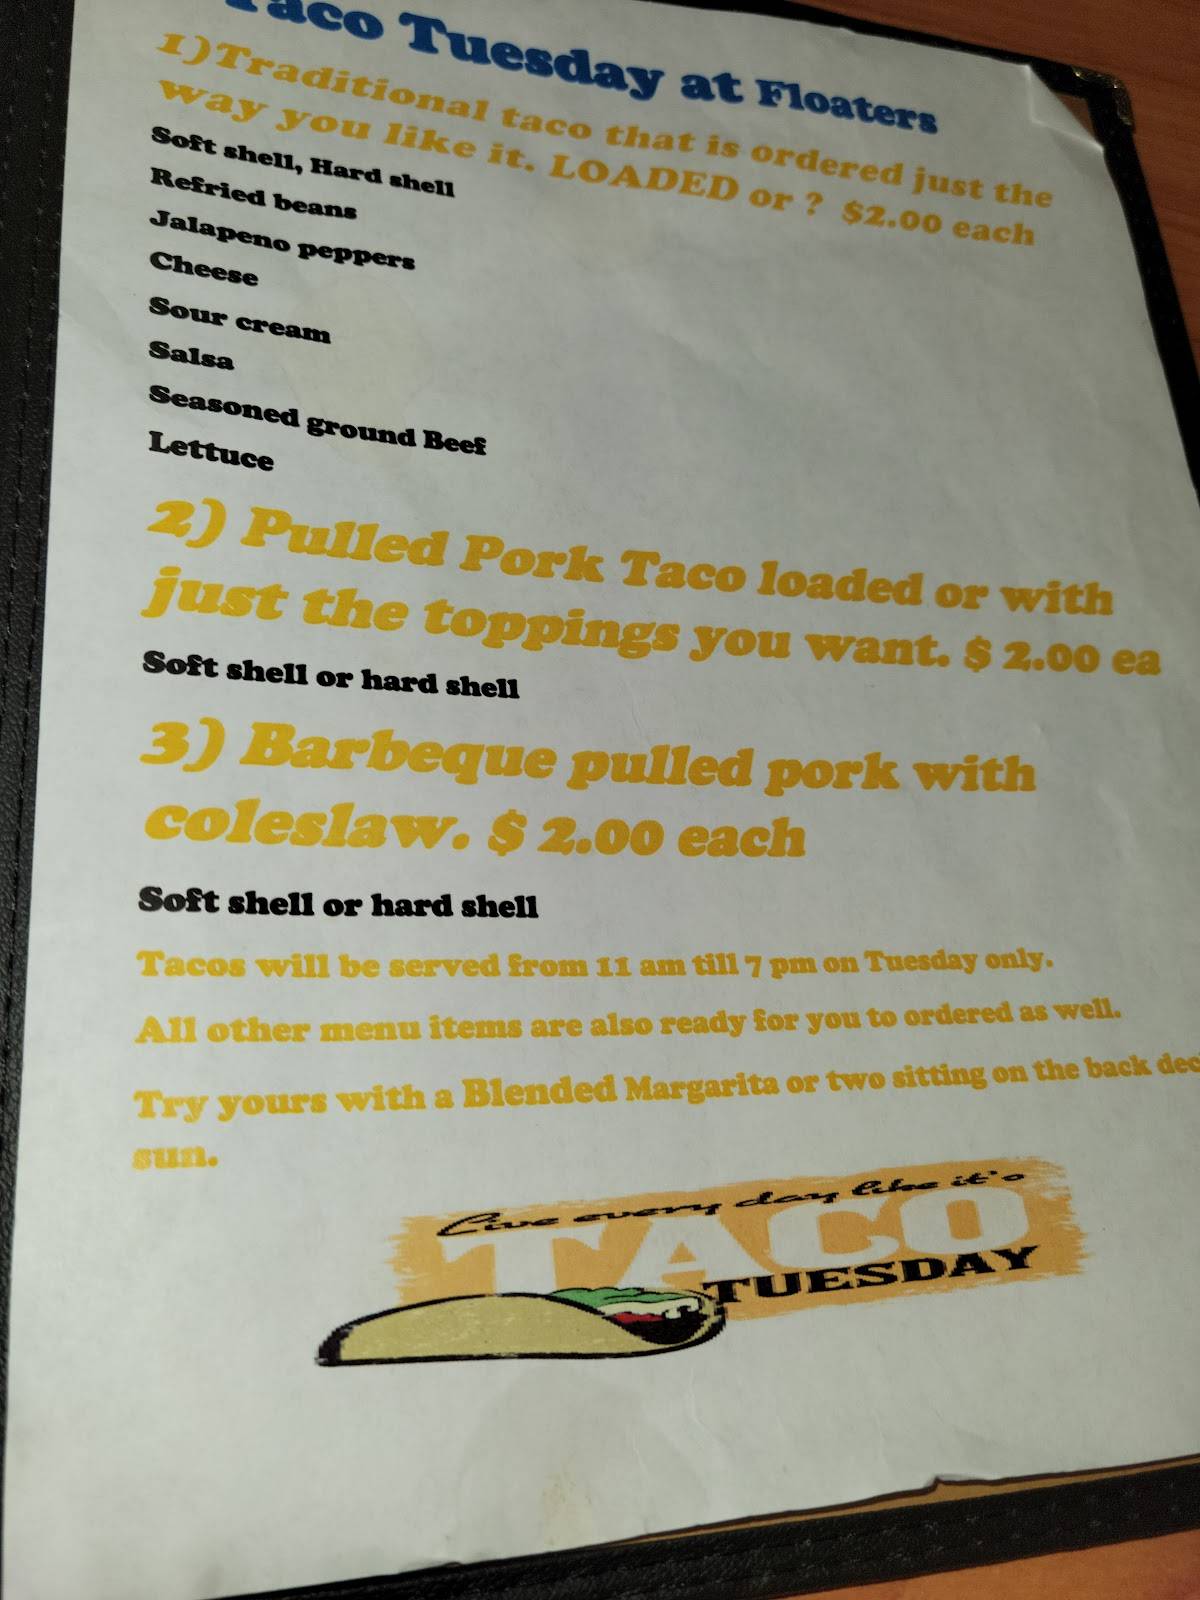 Taco Tuesday at Floaters
1)Traditional taco that is ordered just the
way you like it. LOADED or ? $2.00 each
Soft shell, Hard shell
Refried beans
Jalapeno peppers
Cheese
Sour cream
Salsa
Seasoned ground Beef
Lettuce
2) Pulled Pork Taco loaded or with
just the toppings you want. $ 2.00 ea
Soft shell or hard shell
3) Barbeque pulled pork with
coleslaw. $ 2.00 each
Soft shell or hard shell
Tacos will be served from 11 am till 7 pm on Tuesday only.
All other menu items are also ready for you to ordered as well.
Try yours with a Blended Margarita or two sitting on the back
sun.
Live every day like it's
TACO
TUESDAY